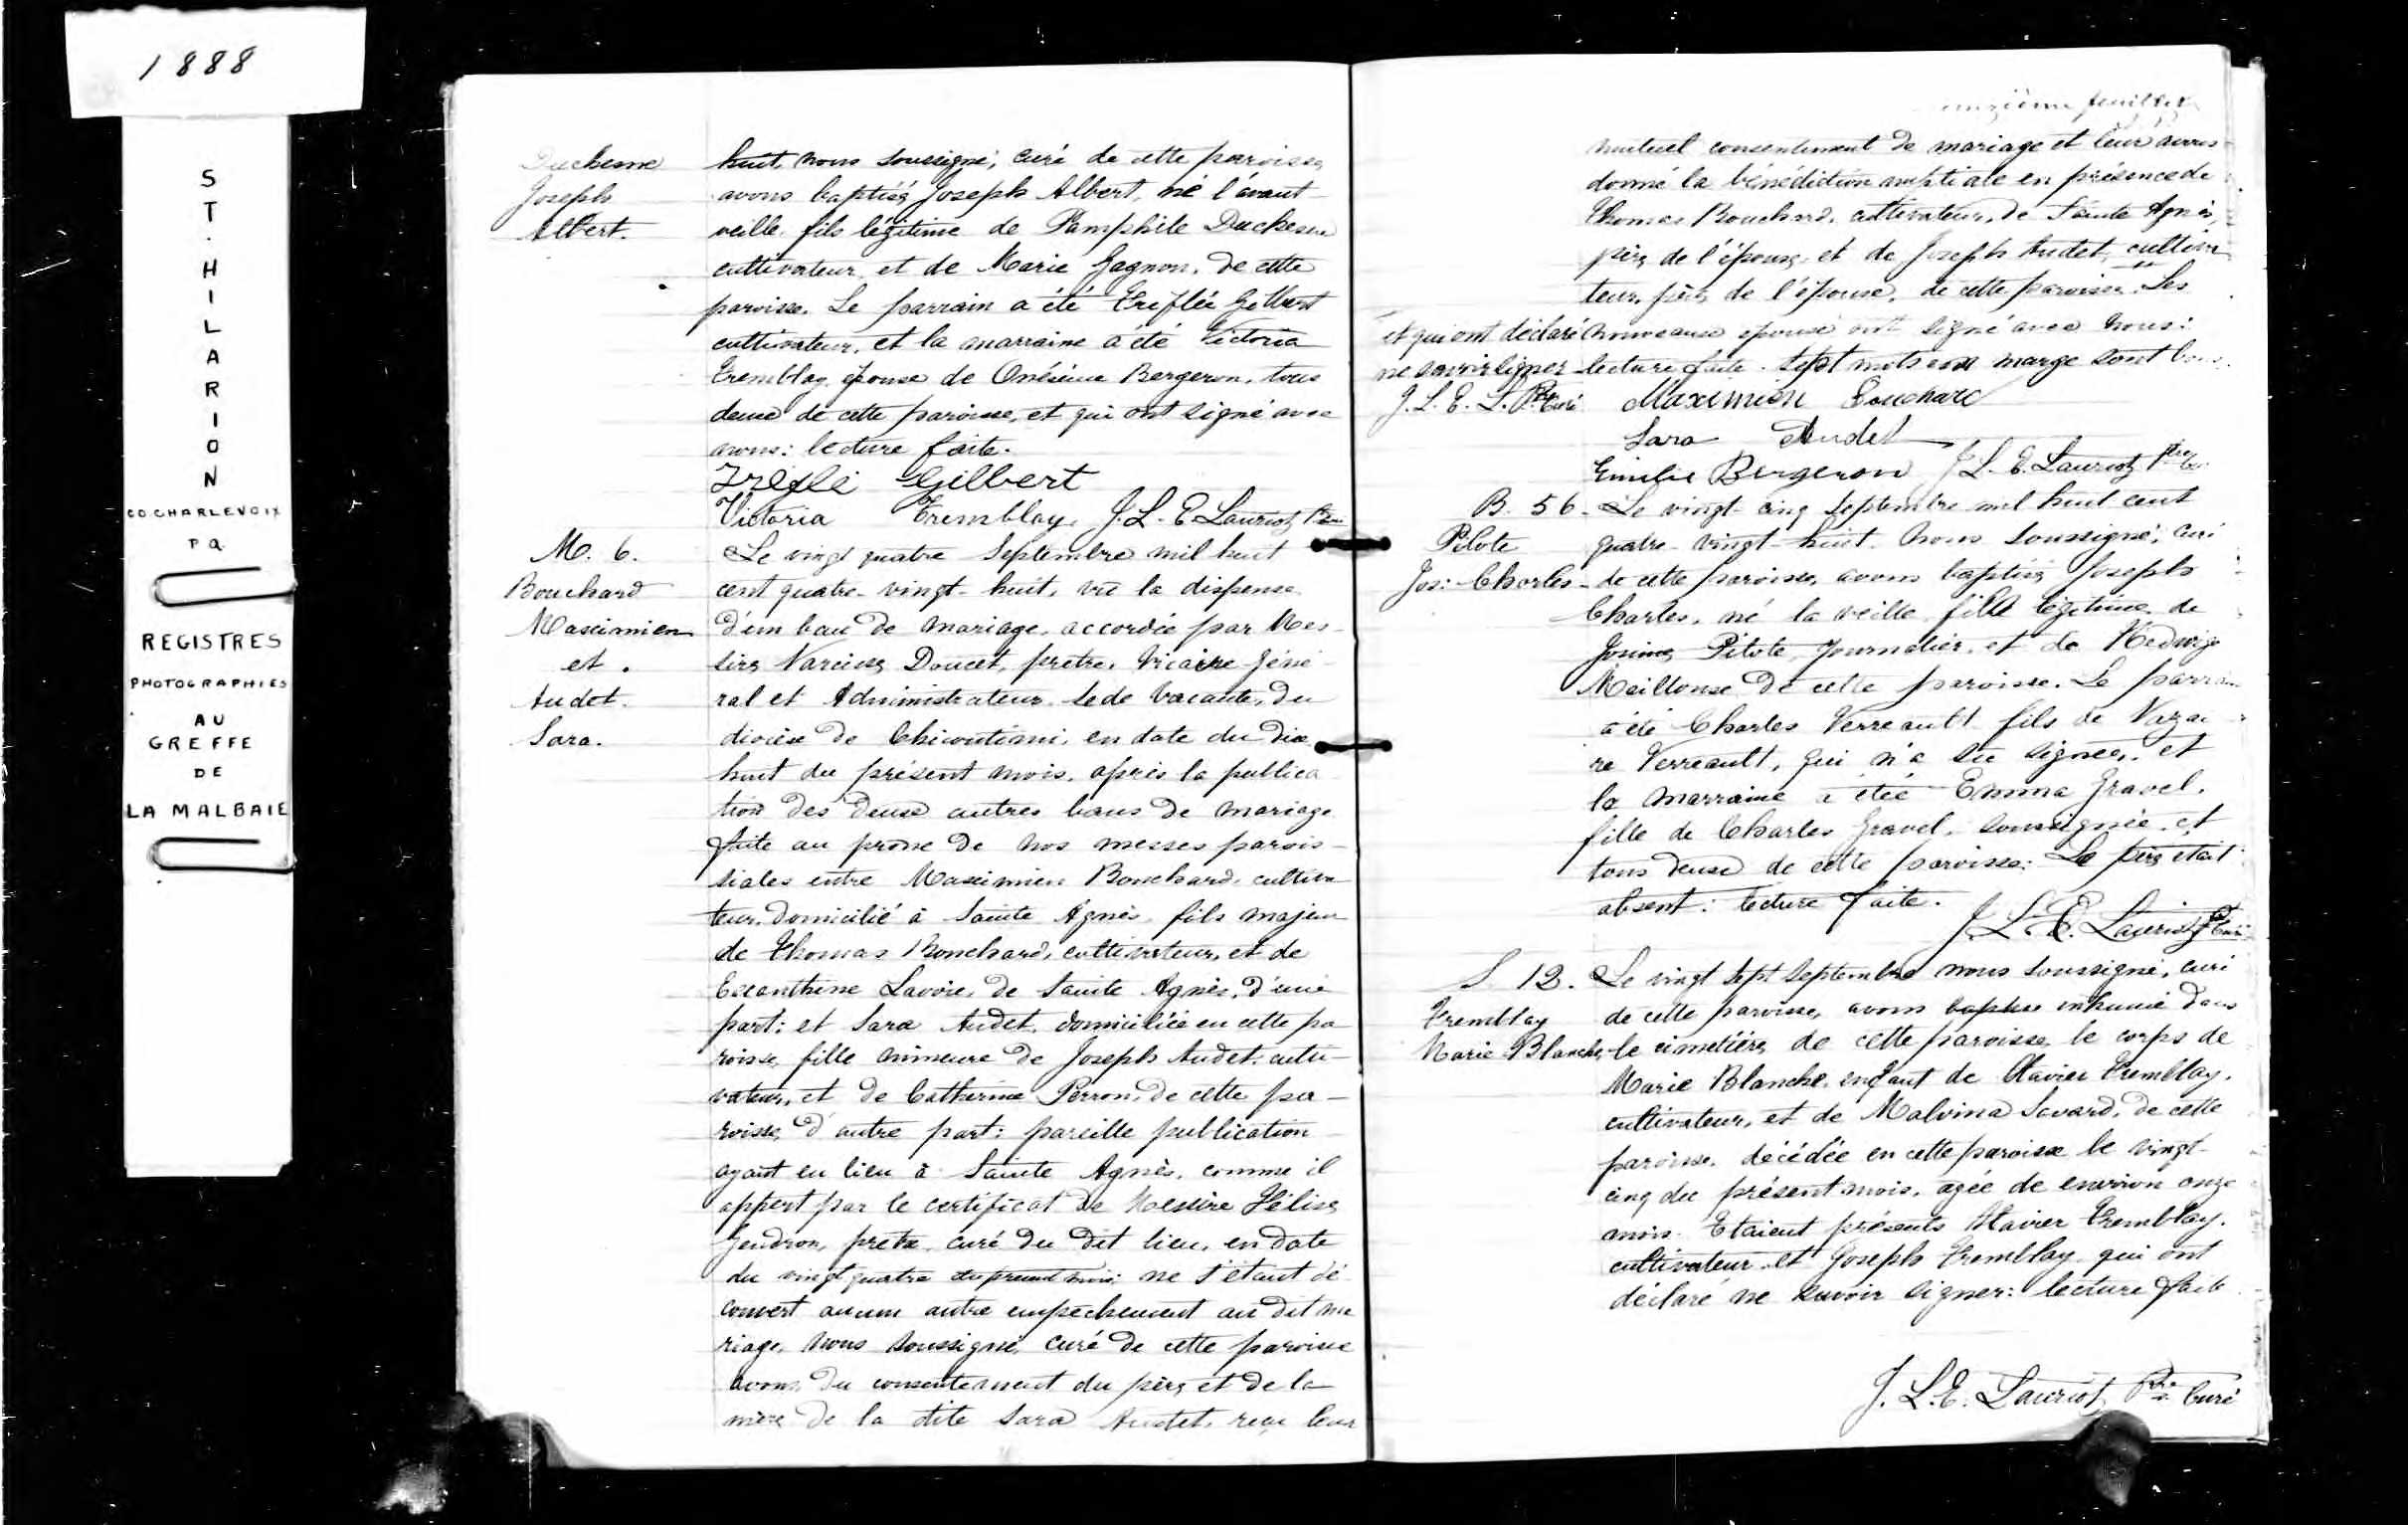 1888
ST. HILARION
CO CHARLEVOIX
P Q
REGISTRES
PHOTOGRAPHIES
AU
GREFFE
DE
LA MALBAIE
Duchesne
Joseph
Albert.
huit, nous soussigné, curé de cette paroisse,
avons baptisé Joseph Albert, né l'avant
veille, fils légitime de Pamphile Duchesne
cultivateur, et de Marie Gagnon, de cette
paroisse. Le parrain a été Trefflée Gilbert
cultivateur, et la marraine a été Victoria
Tremblay, épouse de Onésime Bergeron, tous
deux de cette paroisse, et qui ont signé avec
nous: lecture faite.
Trefflé Gilbert
Victoria Tremblay. J. L. E. Lauriot Ptre
M. 6.
Bouchard
Maximien
et.
Audet.
Sara.
Le vingt quatre Septembre mil huit
cent quatre-vingt-huit, vu la dispense
d'un ban de mariage, accordée par Mes-
sire Narcisse Doucet, prêtre, Vicaire Géné-
ral et Administrateur Sede Vacante, du
diocèse de Chicoutimi, en date du dix
huit du présent mois, après la publica
tion des deux autres bans de mariage
faite au prône de nos messes parois-
siales entre Maximien Bouchard, cultiva
teur, domicilié à Sainte Agnès, fils majeur
de Thomas Bouchard, cultivateur, et de
Exanthine Lavoie, de Sainte Agnès, d'une
part: et Sara Audet, domiciliée en cette pa
roisse, fille mineure de Joseph Audet, culti-
vateur, et de Catherine Perron, de cette pa-
roisse, d'autre part: pareille publication
ayant eu lieu à Sainte Agnès, comme il
appert par le certificat de Messire Hélise
Gendron, prêtre, curé du dit lieu, en date
du vingt quatre du présent mois: ne s'étant dé
couvert aucun autre empêchement au dit ma
riage, nous soussigné, curé de cette paroisse
avons, du consentement du père et de la
mère de la dite Sara Audet, reçu leur
onzième feuillet
mutuel consentement de mariage et leur avons
donné la bénédiction nuptiale en présence de
Thomas Bouchard, cultivateur, de Sainte Agnès,
père de l'époux, et de Joseph Audet, cultiva
teur, père de l'épouse, de cette paroisse. Les
et qui ont déclaré nouveaux époux ont signé avec nous:
ne savoir signer lecture faite. Sept mots en marge sont bons.
J. L. E. L. Ptre Curé Maximien Bouchard
Sara Audet
Emilie Bergeron J. L. E. Lauriot Ptre
B. 56.
Pilote
Jos: Charles
Le vingt-cinq Septembre mil huit cent
quatre-vingt-huit, nous soussigné, curé
de cette paroisse, avons baptisé Joseph
Charles, né la veille, fils légitime de
Josime Pilote, journalier, et de Hedwige
Mailloux de cette paroisse. Le parrain
a été Charles Verreault fils de Nazai
re Verreault, qui n'a su signer, et
la marraine a été Emma Gravel,
fille de Charles Gravel, soussignée, et
tous deux de cette paroisse: Le père était
absent: lecture faite.
J. L. E. Lauriot Ptre Curé
S. 12.
Tremblay
Marie Blanche
Le vingt sept Septembre nous soussigné, curé
de cette paroisse, avons baptisé inhumé dans
le cimetière de cette paroisse, le corps de
Marie Blanche, enfant de Xavier Tremblay,
cultivateur, et de Malvina Savard, de cette
paroisse, décédée en cette paroisse le vingt-
cinq du présent mois, agée de environ onze
mois. Etaient présents Xavier Tremblay,
cultivateur et Joseph Tremblay qui ont
déclaré ne savoir signer: lecture faite.
J. L. E. Lauriot, Ptre Curé